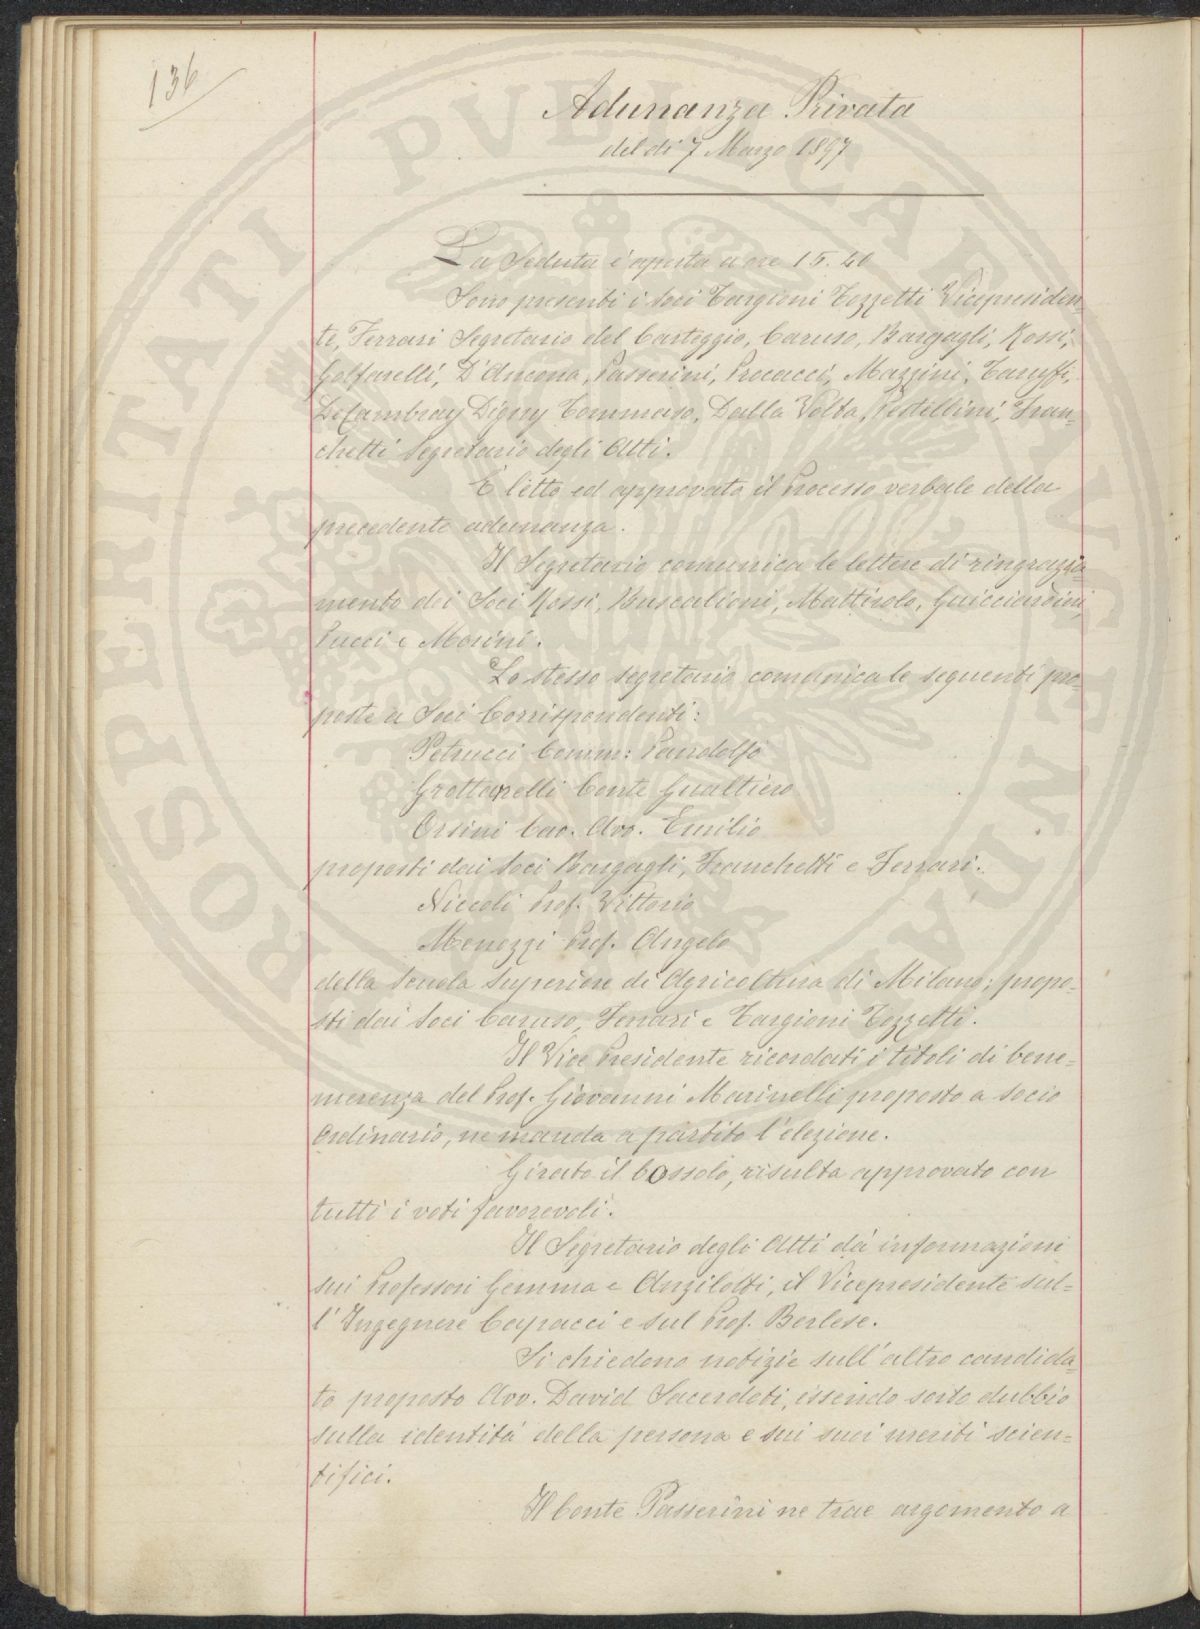 136
Adunanza Privata
del dì 7 Marzo 1897
La Seduta è aperta a ore 15.40
Sono presenti i Soci Targioni Tozzetti Vicepresiden=
te, Ferrari Segretario del Carteggio, Caruso, Bargagli, Rossi,
Golfarelli, D'Ancona, Passerini, Procacci, Mazzini, Taruffi,
De Cambray Digny Tommaso, Dalla Volta, Pestellini, Fran=
chetti Segretario degli Atti.
È letto ed approvato il Processo verbale della
precedente adunanza.
Il Segretario comunica le lettere di ringrazia=
mento dei Soci Rossi, Buscalioni, Mattirolo, Guicciardini,
Pucci e Morini.
Lo stesso segretario comunica le seguenti pro=
poste a Soci Corrispondenti:
Petrucci Comm: Pandolfo
Grottanelli Conte Gualtiero
Orsini Cav. Avv. Emilio
proposti dai Soci Bargagli, Franchetti e Ferrari.
Niccoli Prof. Vittorio
Menozzi Prof. Angelo
della Scuola Superiore di Agricoltura di Milano; propo=
sti dai Soci Caruso, Ferrari e Targioni Tozzetti.
Il Vice Presidente ricordati i titoli di bene=
merenza del Prof. Giovanni Marinelli proposto a socio
Ordinario, ne manda a partito l'elezione.
Girato il bossolo, risulta approvato con
tutti i voti favorevoli.
Il Segretario degli Atti dà informazioni
sui Professori Gemma e Anzilotti, il Vicepresidente sul=
l'Ingegnere Capacci e sul Prof. Berlese.
Si chiedono notizie sull'altro candida=
to proposto Avv. David Sacerdoti, essendo sorto dubbio
sulla identità della persona e sui suoi meriti scien=
tifici.
Il Conte Passerini ne trae argomento a
PROSPERITATI PVBLICAE AVGENDAE